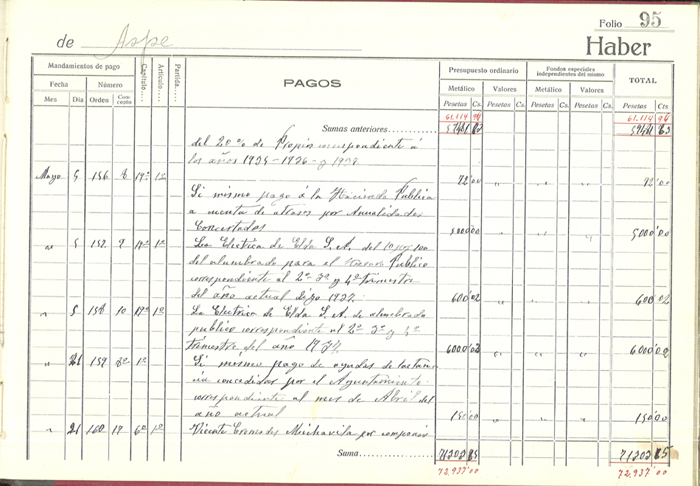 Folio 95
de Aspe
Haber
Mandamientos de pago
Fecha Número
Mes Día Orden Con-cepto
Capítulo....
Artículo....
Partida....
PAGOS
Presupuesto ordinario
Metálico Valores
Pesetas Cs. Pesetas Cs.
Fondos especiales independientes del mismo
Metálico Valores
Pesetas Cs. Pesetas Cs.
TOTAL
Pesetas Cts
61.114 94 61.114 94
Sumas anteriores
del 20% de Propios correspondiente á
los años 1925-1926-y 1927.
Mayo 5 156 8 19º 1º 72'00 " " " 72'00
Si mismo pago á la Hacienda Publica
a cuenta de atrasos por Anualidades
Concertados 5000'00 " " " 5000'00
" 5 157 9 19º 1º La Electrica de Elda S.A. del 10 por 100
del alumbrado para el Publico
correspondiente al 2º 3º y 4º trimestre
del año actual 1927. 600'02 " " " 600'02
" 5 158 10 19º 1º La Electrica de Elda S.A. de alumbrado
publico correspondiente al 2º 3º y 4º
trimestre del año 6000'02 " " 6000'02
" 21 159 1º Si mismo pago de ayudas de lactan
cia concedidas por el Ayuntamiento
correspondiente al mes de Abril del
año actual 150'00 " " " 150'00
" 21 160 17 6º 1º Vicente Cremades por
Suma 71303 85 71303 85
72,937'00 72,937'00